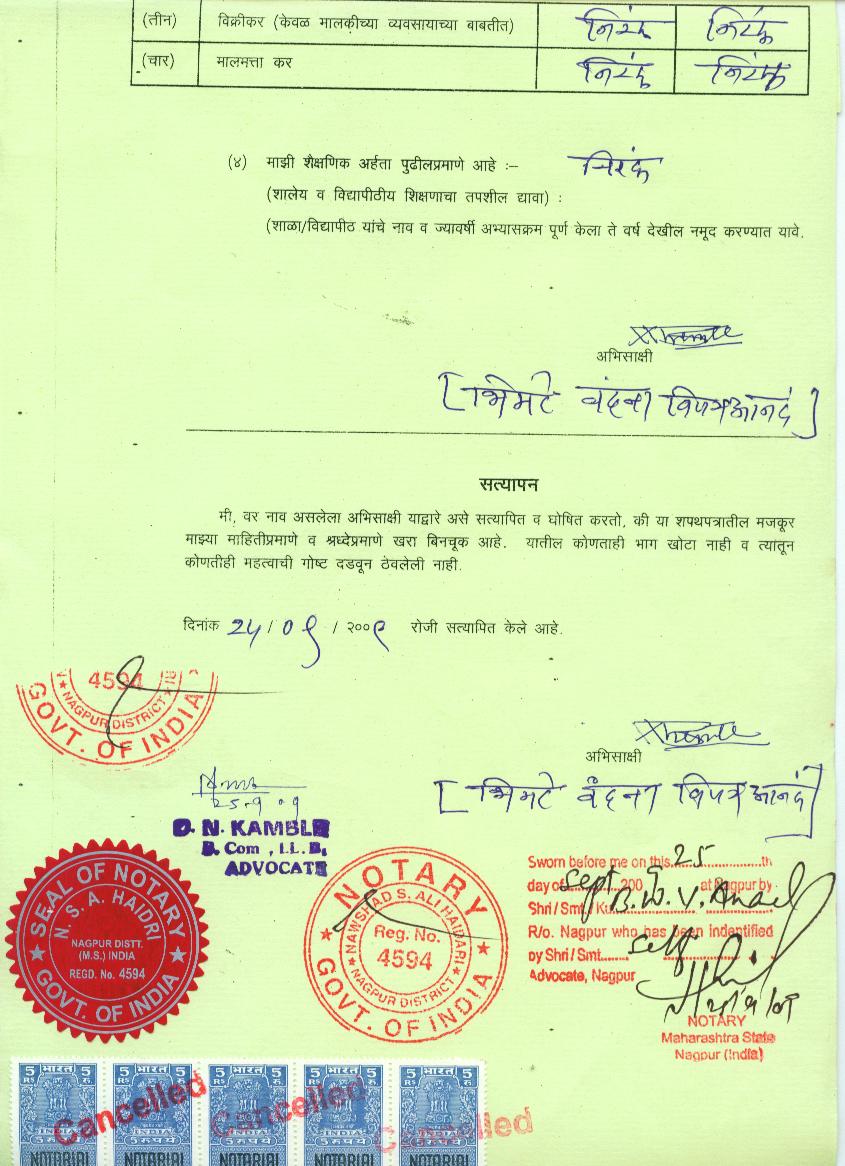 (तीन) विक्रीकर (केवळ मालकीच्या व्यवसायाच्या बाबतीत) निरंक निरंक
(चार) मालमत्ता कर निरंक निरंक
(४) माझी शैक्षणिक अर्हता पुढीलप्रमाणे आहे :– निरंक
(शालेय व विद्यापीठीय शिक्षणाचा तपशील द्यावा) :
(शाळा/विद्यापीठ यांचे नाव व ज्यावर्षी अभ्यासक्रम पूर्ण केला ते वर्ष देखील नमूद करण्यात यावे.
अभिसाक्षी
[भिमटे वंदना विप्रआनंद]
सत्यापन
मी, वर नाव असलेला अभिसाक्षी याद्वारे असे सत्यापित व घोषित करतो, की या शपथपत्रातील मजकूर
माझ्या माहितीप्रमाणे व श्रध्देप्रमाणे खरा बिनचूक आहे. यातील कोणताही भाग खोटा नाही व त्यांतून
कोणतीही महत्वाची गोष्ट दडवून ठेवलेली नाही.
दिनांक २५/०९/२००९ रोजी सत्यापित केले आहे.
4594
NAGPUR DISTRICT
GOVT. OF INDIA
अभिसाक्षी
[भिमटे वंदना विप्रआनंद]
25-9-09
D. N. KAMBLE
B. Com , LL. B.
ADVOCATE
SEAL OF NOTARY
N. S. A. HAIDRI
NAGPUR DISTT.
(M.S.) INDIA
REGD. No. 4594
GOVT. OF INDIA
NOTARY
NAWSHAD S. ALI HAIDARI
Reg. No.
4594
NAGPUR DISTRICT
GOVT. OF INDIA
Sworn before me on this 25 th
day of Sept 200 at Nagpur by
Shri / Smt / Ku. B. W. V. Anand
R/o. Nagpur who has been indentified
by Shri / Smt. self
Advocate, Nagpur
NOTARY
Maharashtra State
Nagpur (India)
5 भारत 5 5 भारत 5 5 भारत 5 5 भारत 5 5 भारत 5
RS रु. RS रु. RS रु. RS रु. RS रु.
Cancelled Cancelled Cancelled
INDIA INDIA INDIA INDIA INDIA
5 रुपये 5 रुपये 5 रुपये 5 रुपये 5 रुपये
NOTARIAL NOTARIAL NOTARIAL NOTARIAL NOTARIAL